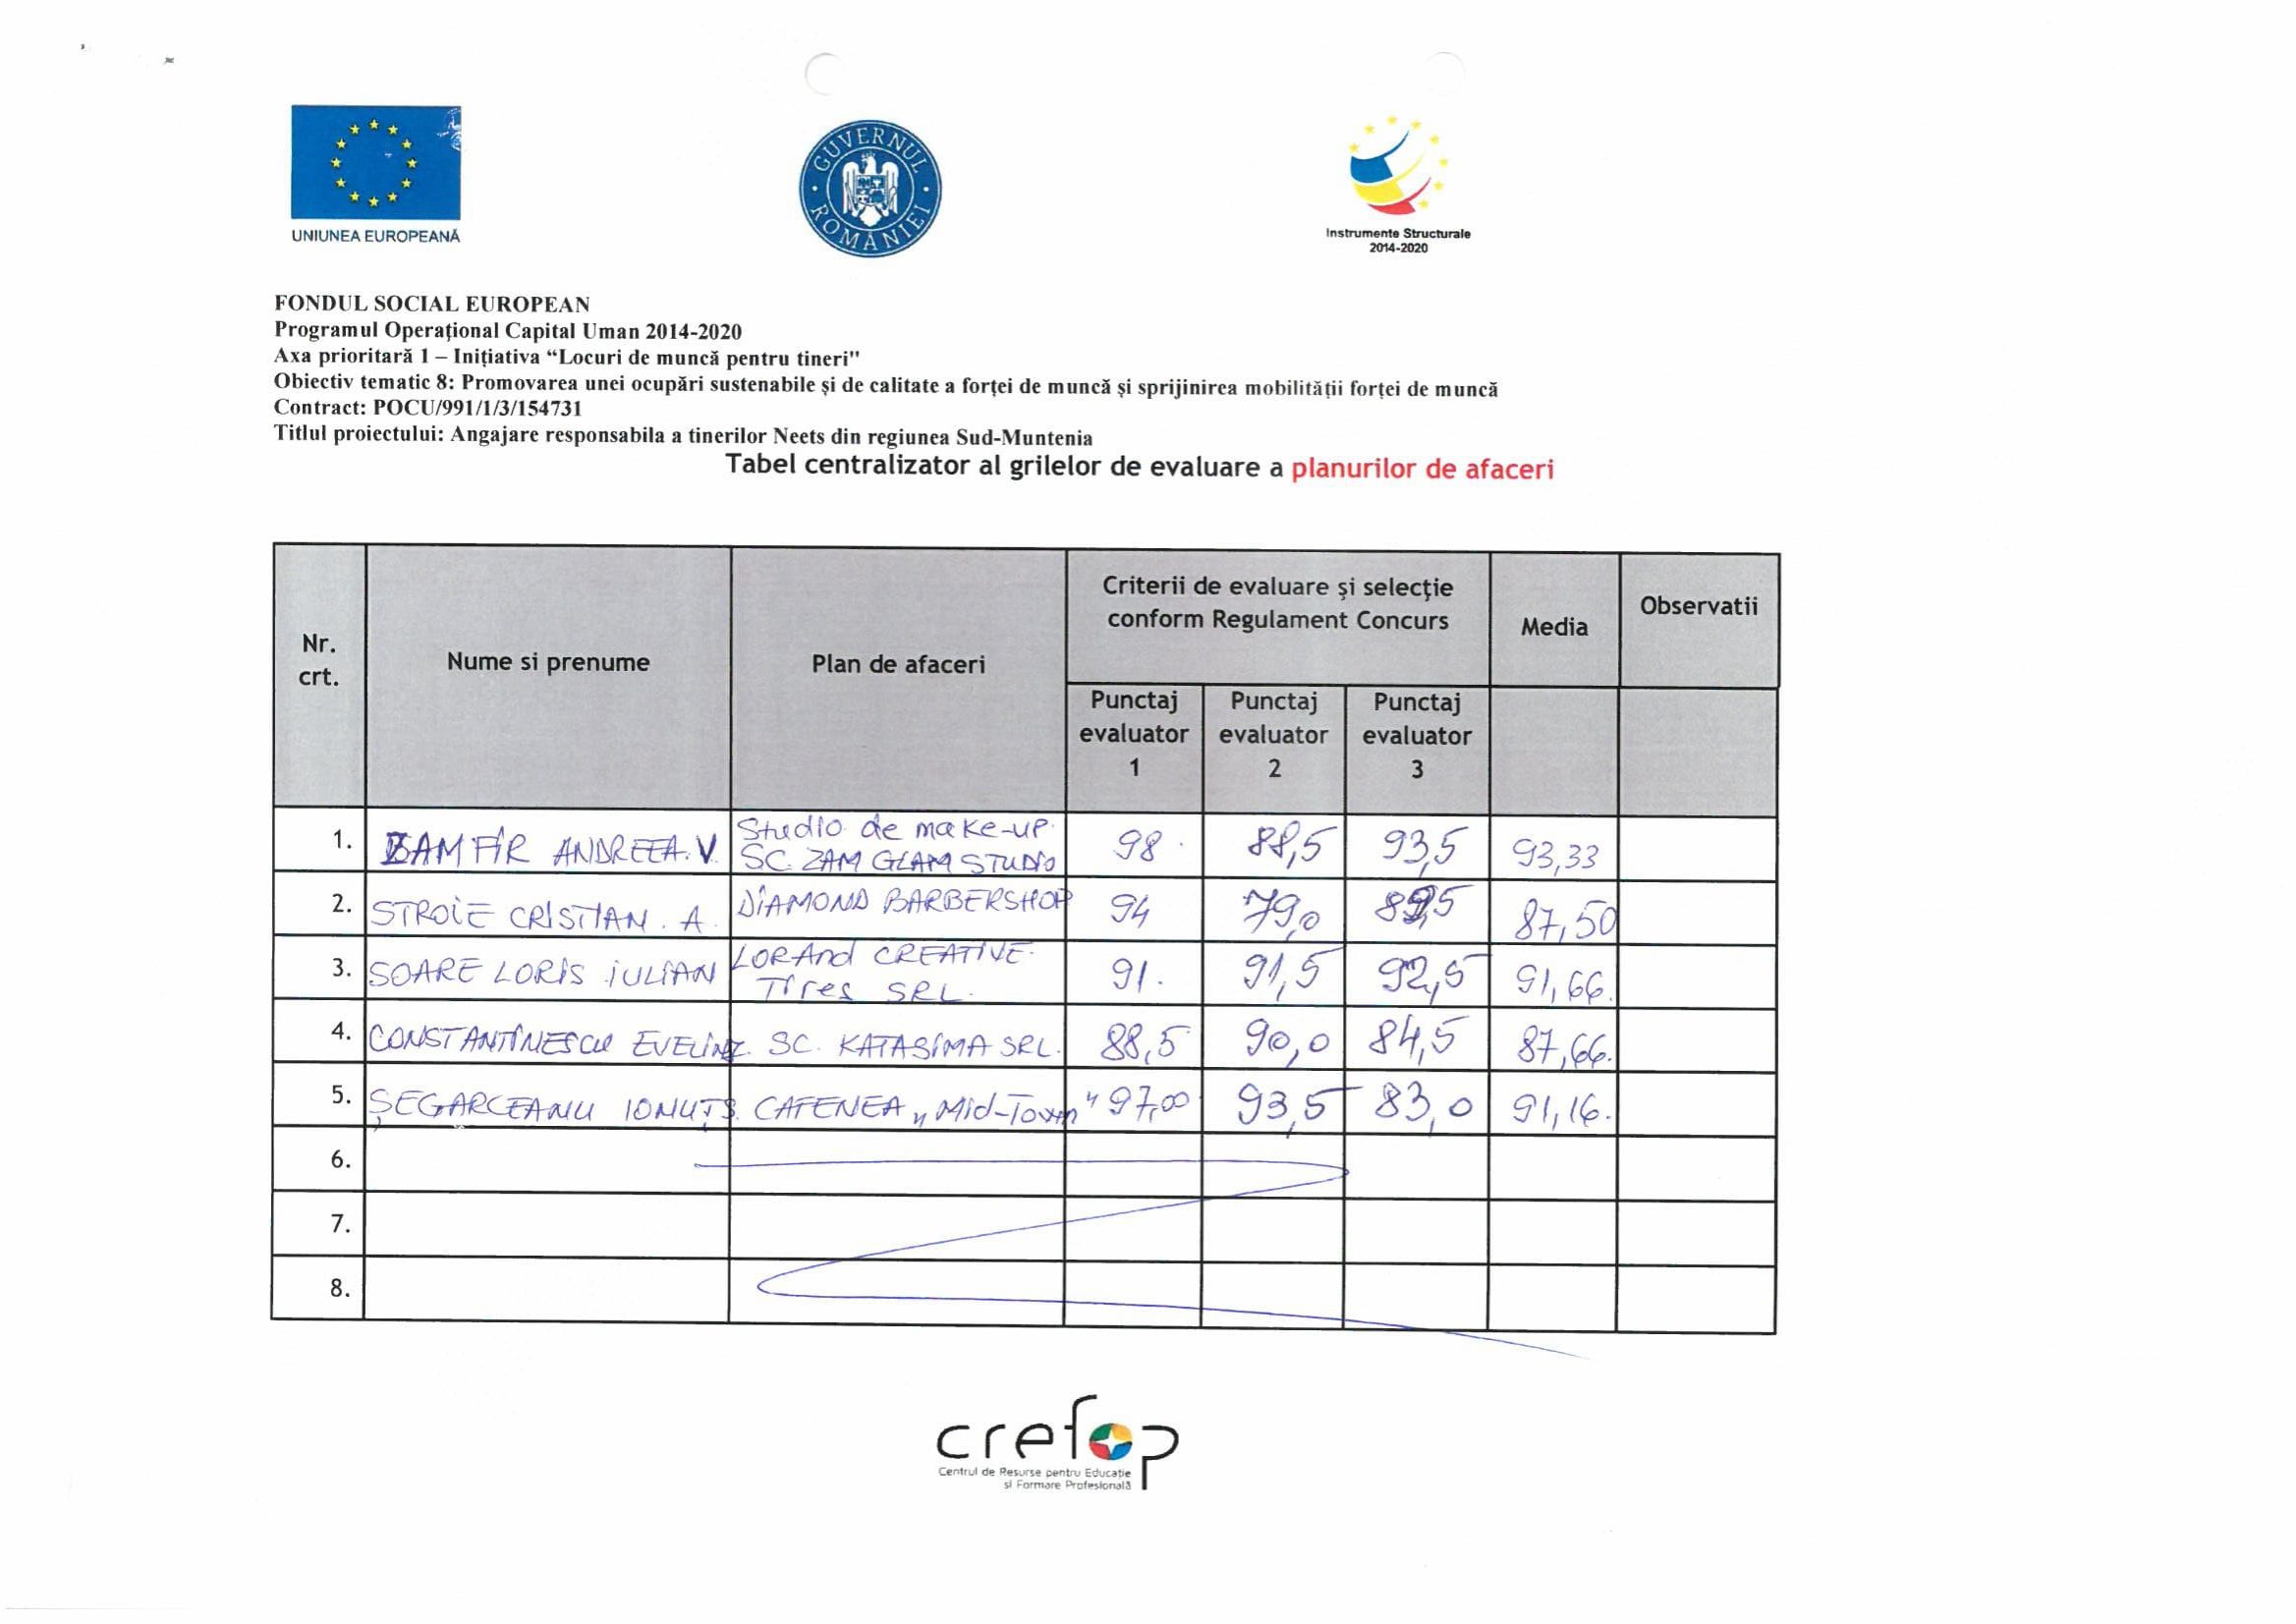 UNIUNEA EUROPEANĂ
GUVERNUL ROMÂNIEI
Instrumente Structurale
2014-2020
FONDUL SOCIAL EUROPEAN
Programul Operațional Capital Uman 2014-2020
Axa prioritară 1 – Inițiativa “Locuri de muncă pentru tineri"
Obiectiv tematic 8: Promovarea unei ocupări sustenabile și de calitate a forței de muncă și sprijinirea mobilității forței de muncă
Contract: POCU/991/1/3/154731
Titlul proiectului: Angajare responsabila a tinerilor Neets din regiunea Sud-Muntenia
Tabel centralizator al grilelor de evaluare a planurilor de afaceri
Nr.
crt.
Nume si prenume
Plan de afaceri
Criterii de evaluare şi selecţie
conform Regulament Concurs
Media
Observatii
Punctaj
evaluator
1
Punctaj
evaluator
2
Punctaj
evaluator
3
1. ZAMFIR ANDREEA.V Studio de make-up.
SC. ZAM GLAM STUDIO 98 88,5 93,5 93,33
2. STROIE CRISTIAN. A. DIAMOND BARBERSHOP 94 79,0 89,5 87,50
3. SOARE LORIS IULIAN LORAnd CREATIVE
Tires SRL. 91. 91,5 92,5 91,66.
4. CONSTANTINESCU EVELINE SC. KATASIMA SRL. 88,5 90,0 84,5 87,66.
5. ȘEGARCEANU IONUȚ Ș. CAFENEA „Mid-Town" 97,00 93,5 83,0 91,16.
6.
7.
8.
crefop
Centrul de Resurse pentru Educaţie
şi Formare Profesională